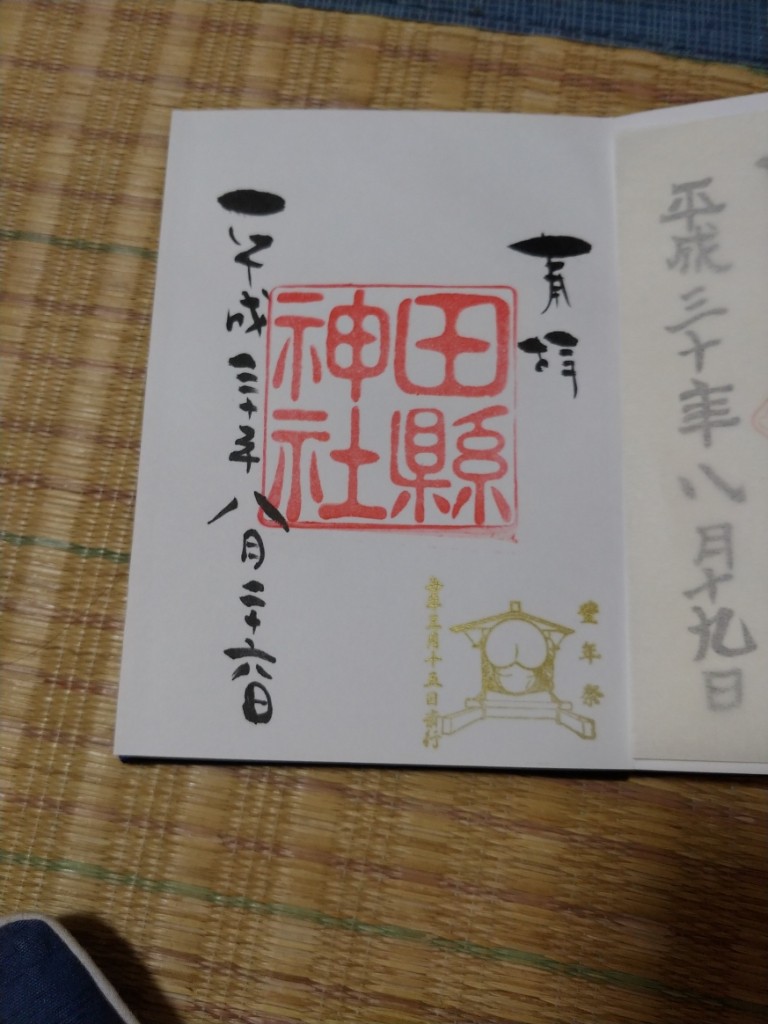 平成三十年八月十九日
奉拝
田縣
神社
平成三十年八月二十六日
豊年祭
毎年三月十五日斎行